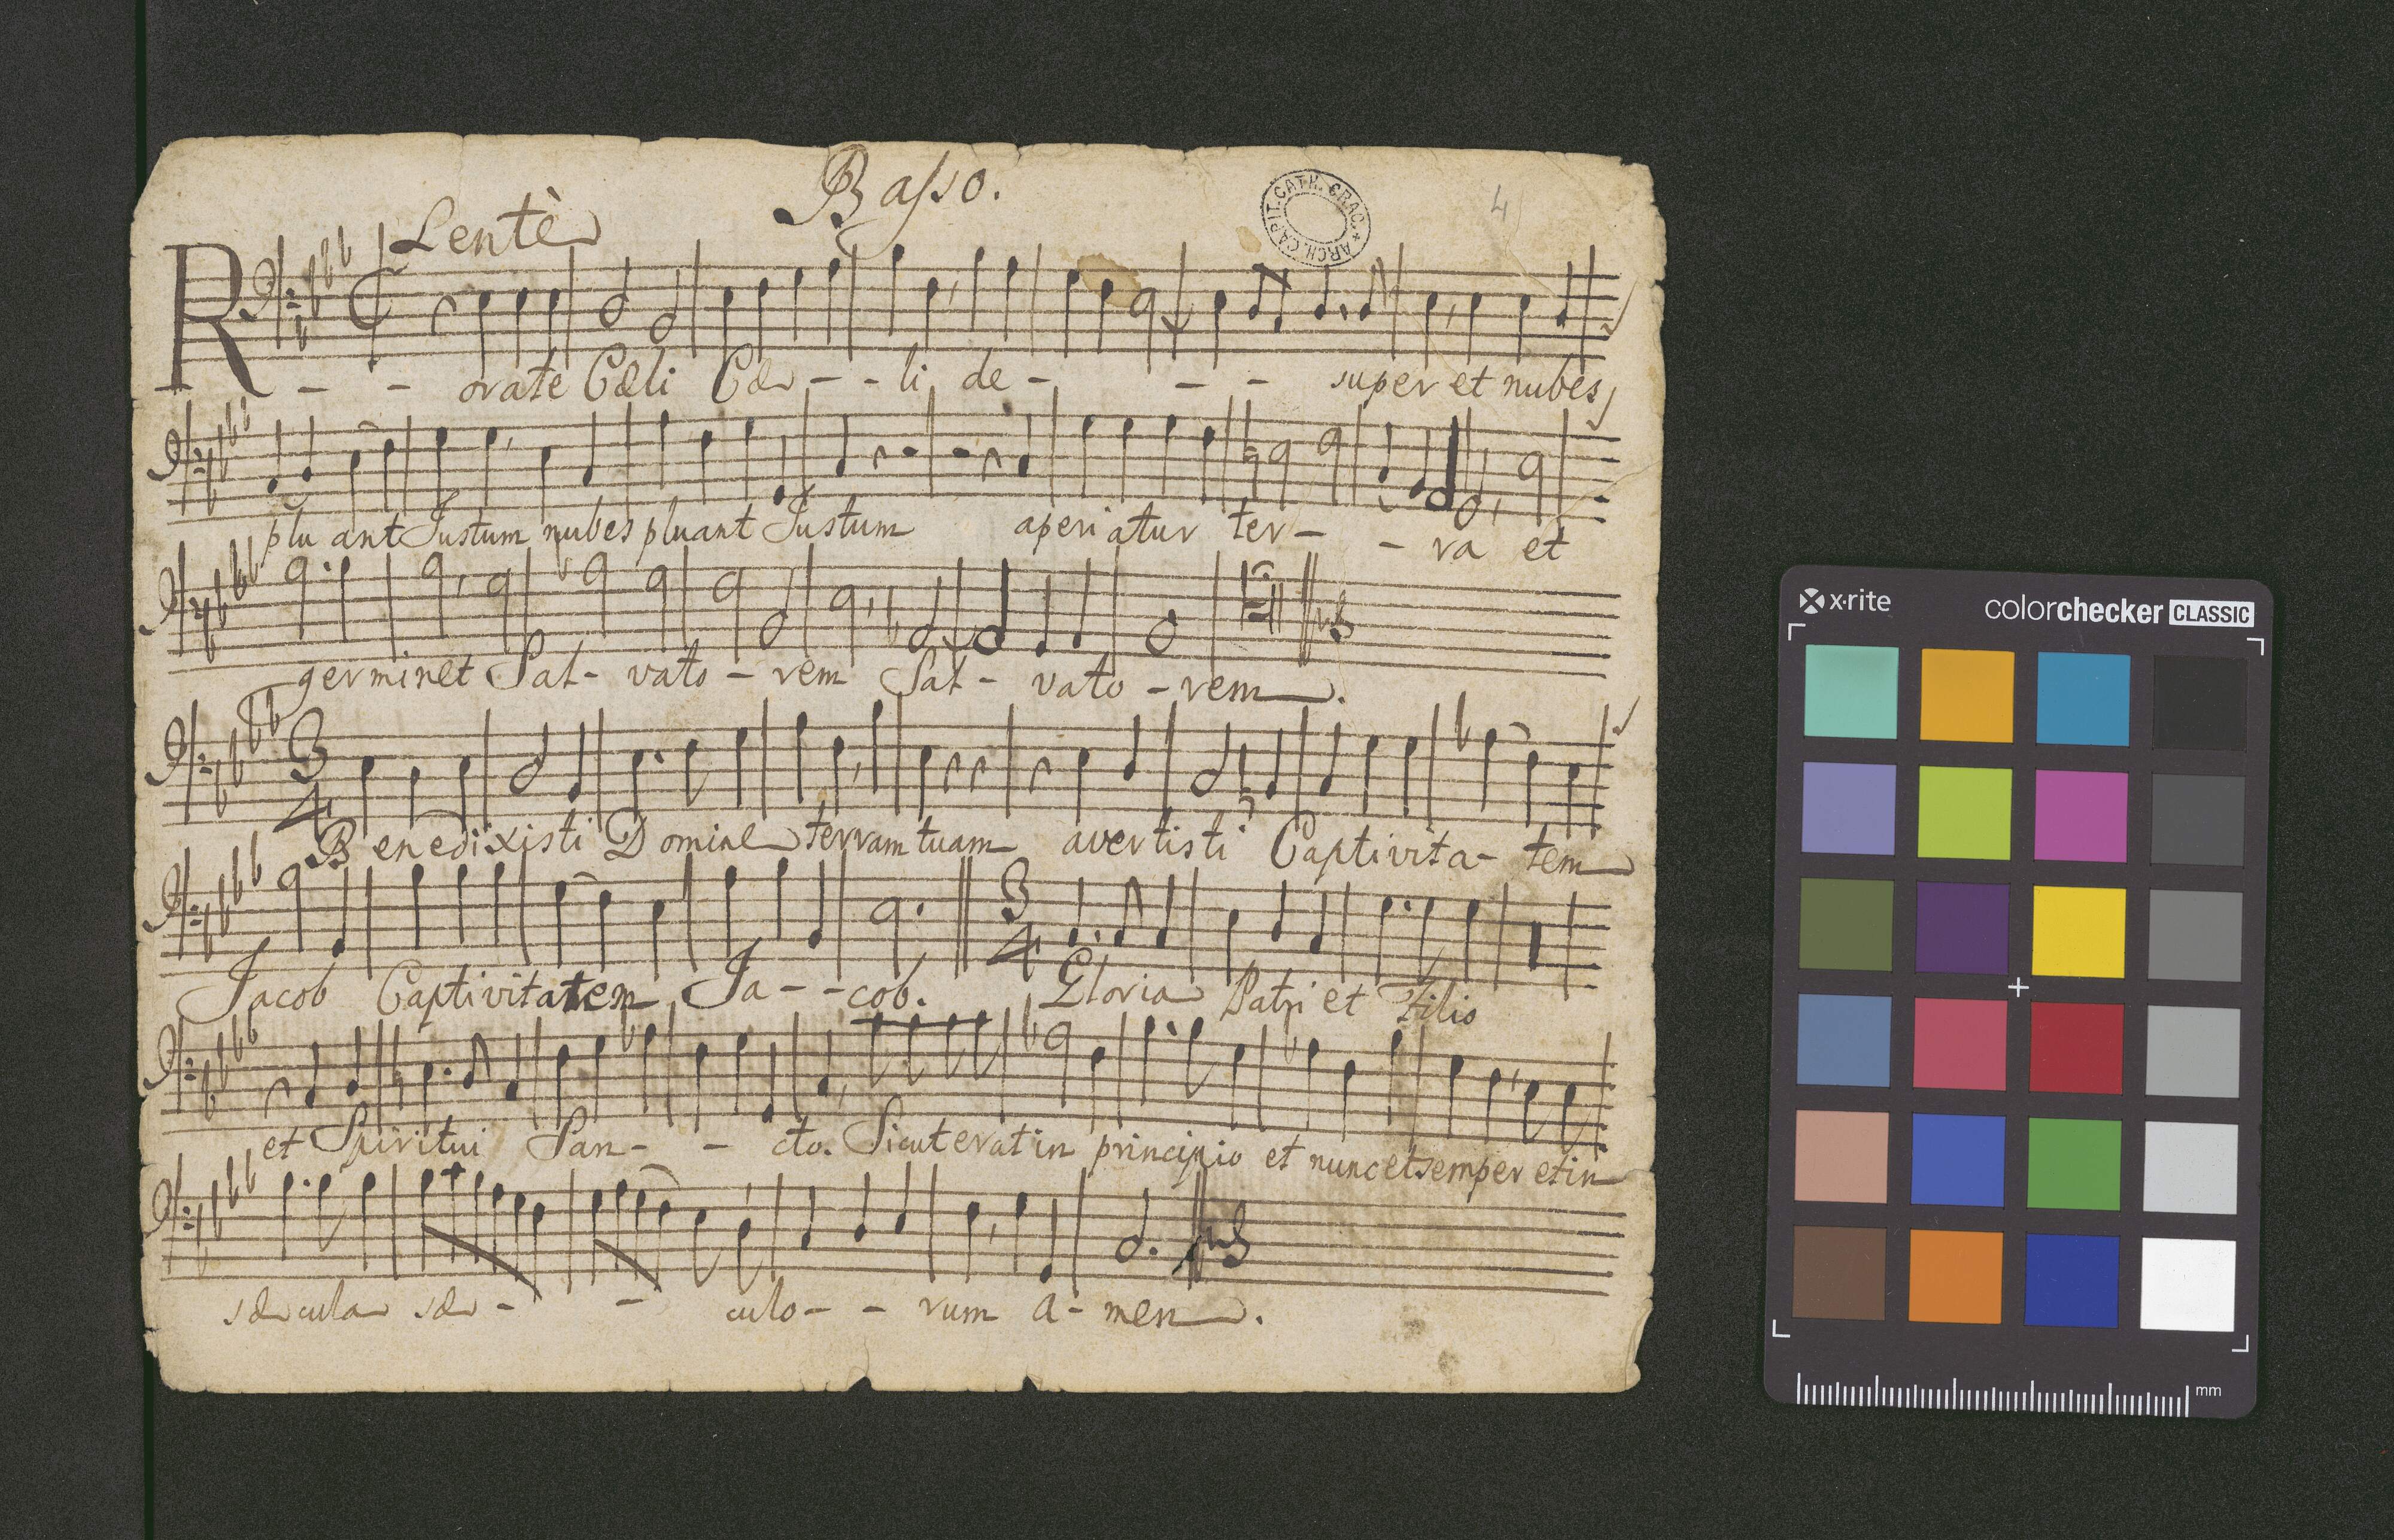 Basso.
ARCH. CAPIT. CATH. CRAC.
4
Lentè
Rorate Cæli Cæ - - li de - - - super et nubes
plu ant Justum nubes pluant Justum aperiatur ter - - ra et
germinet Sal - vato - rem Sal - vato - rem.
3
4
Benedixisti Domine terram tuam avertisti Captivita - tem
3
4
Jacob Captivitatem Ja - - cob. Gloria Patri et Filio
et Spiritui San - - cto. Sicut erat in principio et nunc et semper et in
sæcula sæ - - culo - - rum a - men.
x-rite
colorchecker CLASSIC
mm